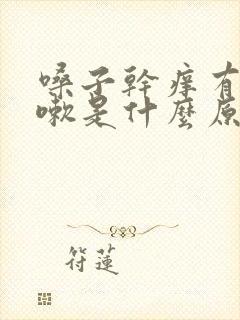 嗓子幹癢有
嗽是什麼原
符蓮